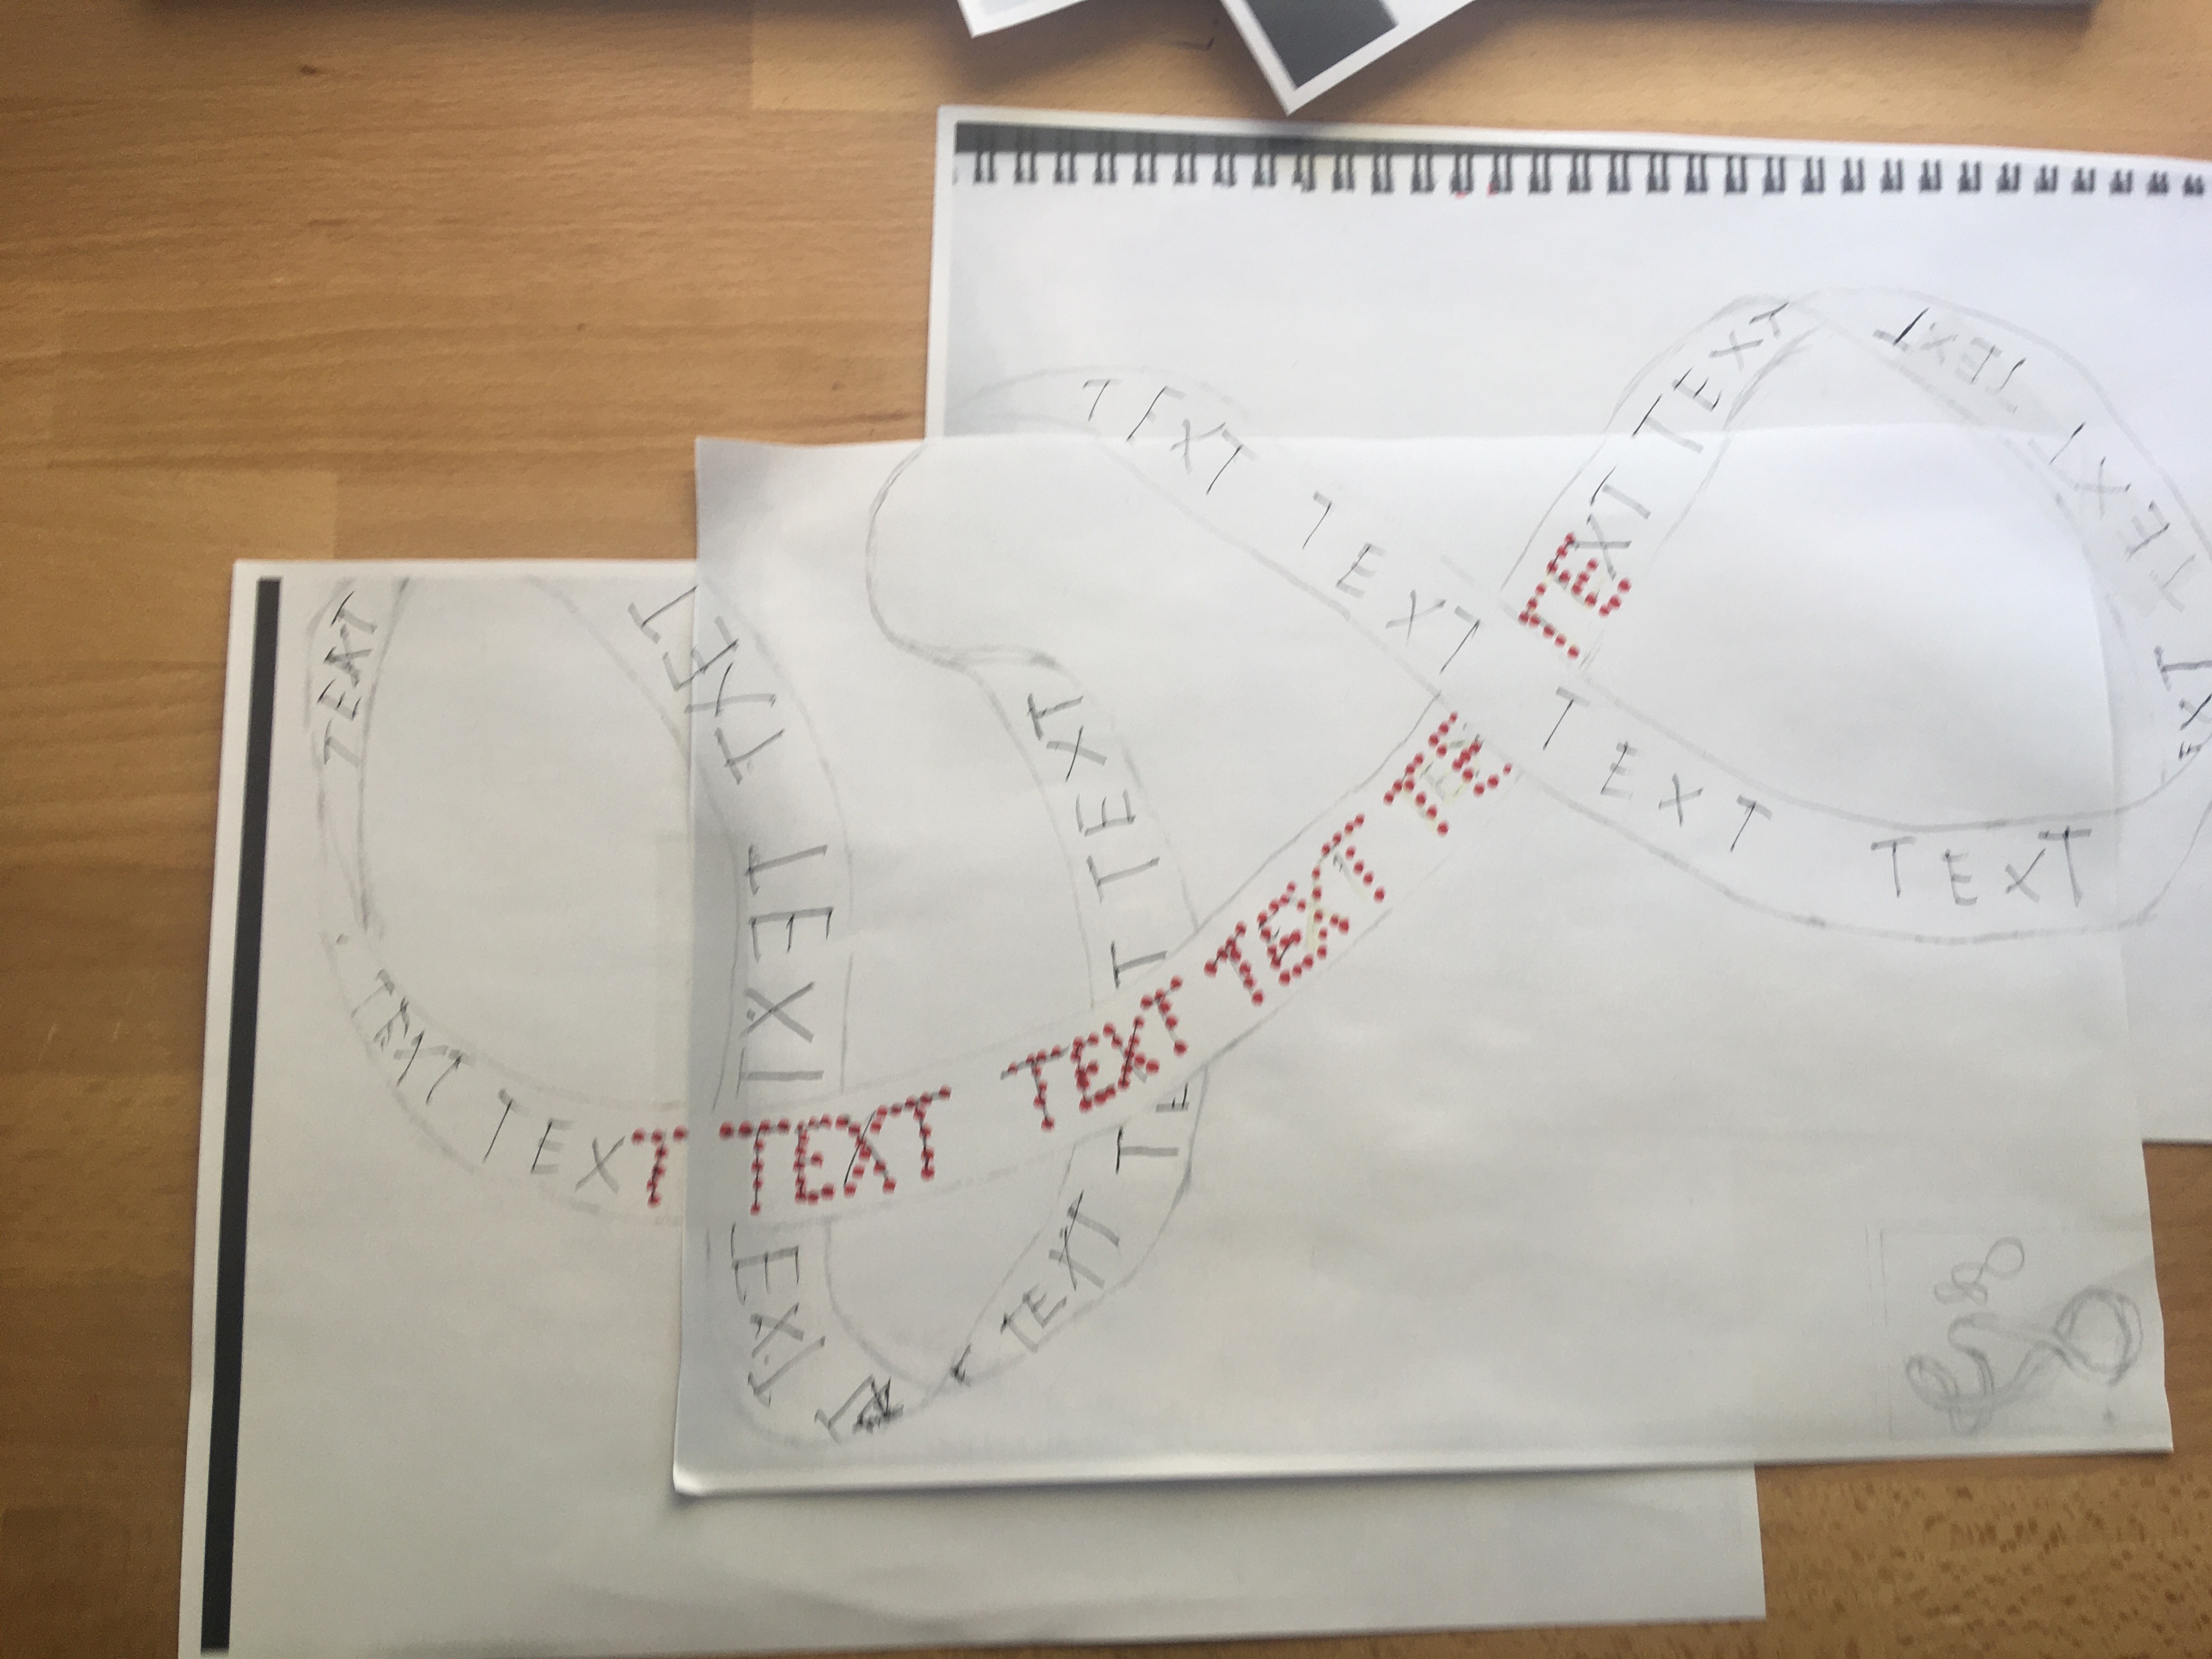 TEXT
TEXT
TEXT
TEXT
TEXT
TEXT
TEXT
TEXT
TEXT
TEXT
TEXT
TE
T
TEXT
TEXT
TEXT
TE
TEXT
TEXT
TEXT
TEXT
TEXT
TEXT
TEXT
EXT